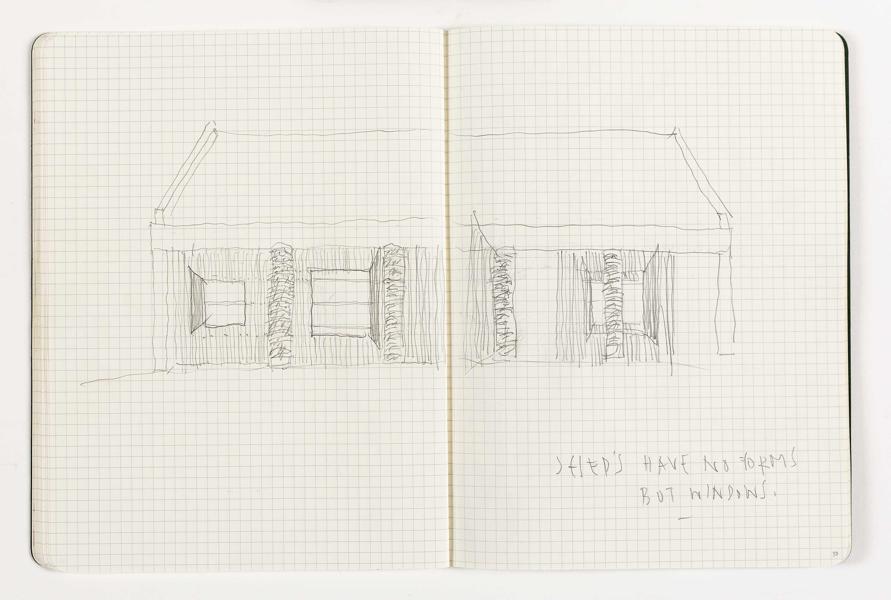 SHED'S HAVE NO FORMS
BUT WINDOWS.